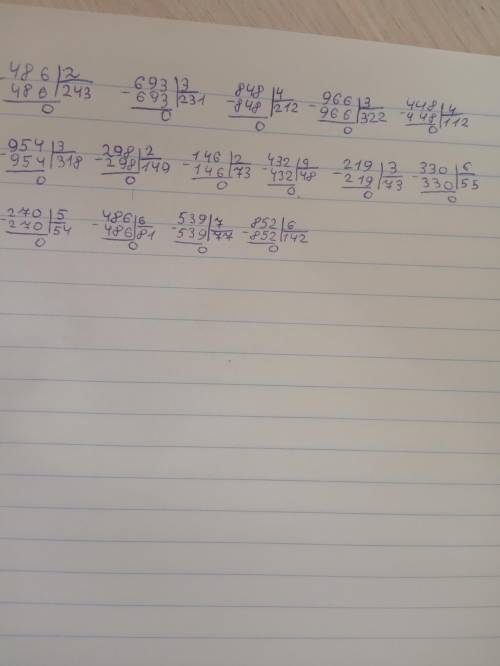 486 2 - 693 3 848 4 966 3 448 4
486 243 693 231 - 848 212 - 966 322 - 448 112
0 0 0 0 0
954 3 298 2 146 2 432 9 219 3 330 6
- 954 318 - 298 149 - 146 73 - 432 48 - 219 73 - 330 55
0 0 0 0 0 0
270 5 486 6 539 7 852 6
- 270 54 - 486 81 - 539 77 - 852 142
0 0 0 0